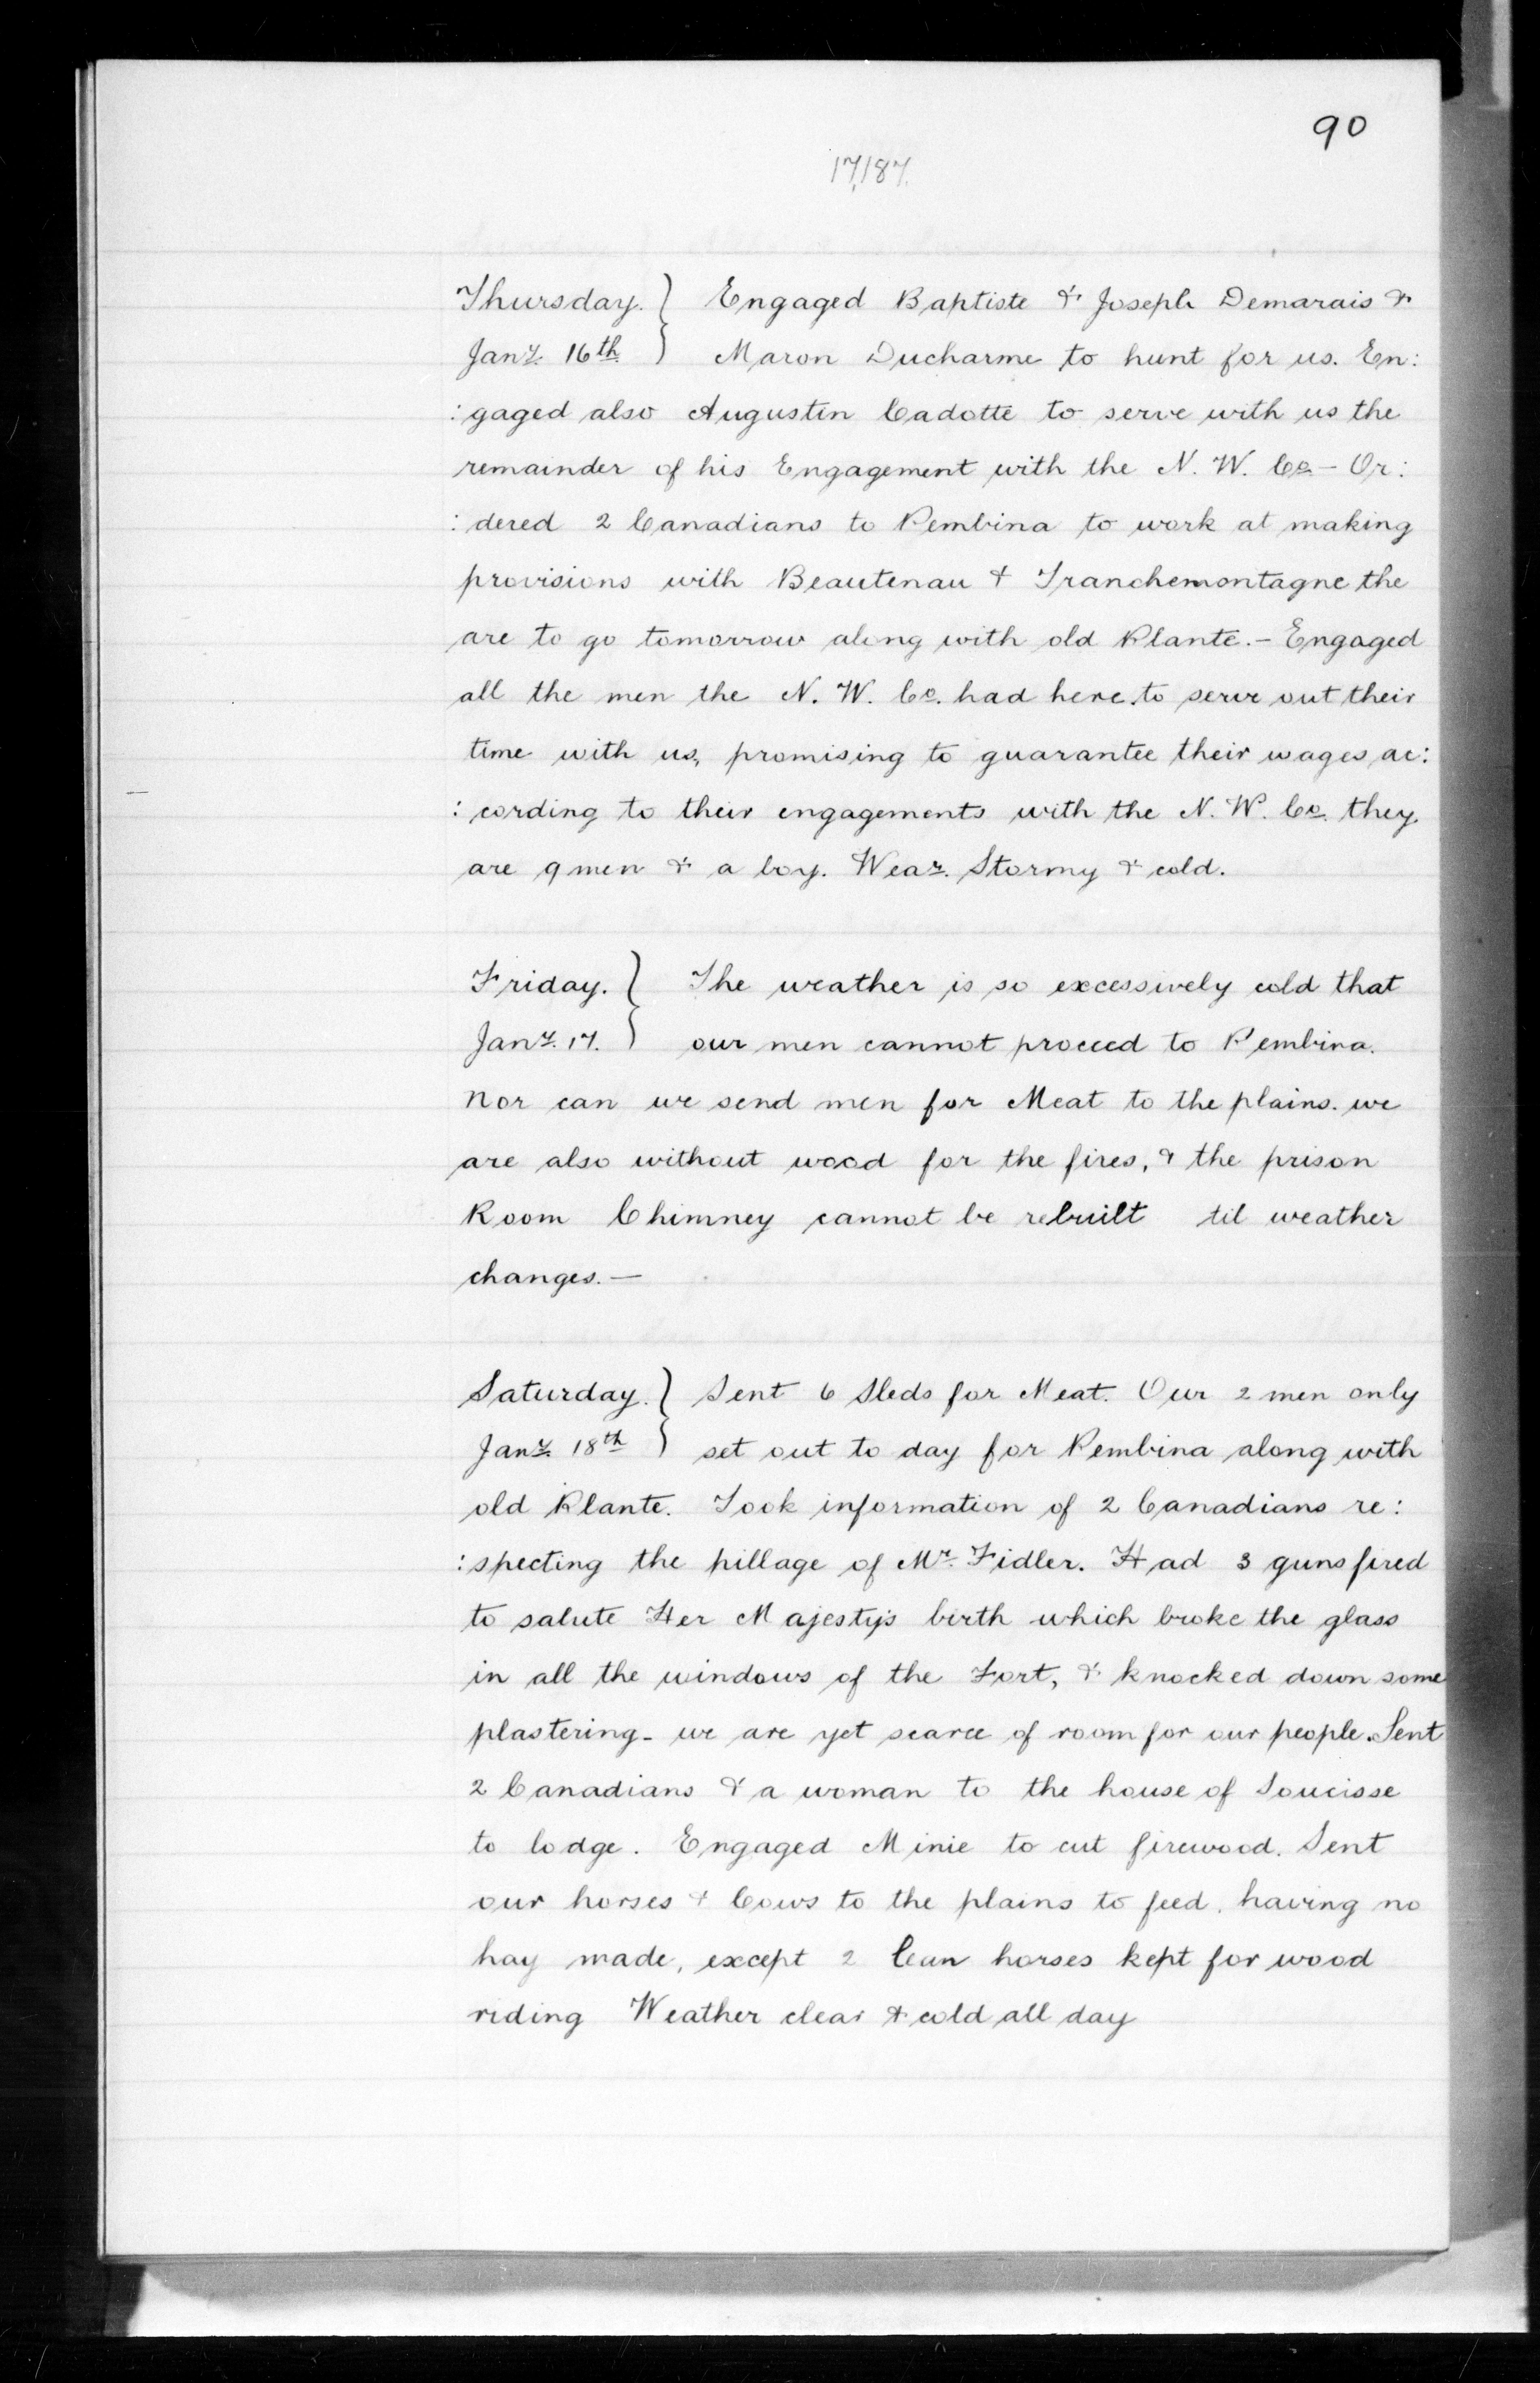 90
17,187.
Thursday. } Engaged Baptiste & Joseph Demarais &
Jany. 16th } Maron Ducharme to hunt for us. En:
:gaged also Augustin Cadotte to serve with us the
remainder of his Engagement with the N. W. Co. – Or:
:dered 2 Canadians to Pembina to work at making
provisions with Beautenau & Tranchemontagne the
are to go tomorrow along with old Plante. – Engaged
all the men the N. W. Co. had here. to serve out their
time with us, promising to guarantee their wages ac:
:cording to their engagements with the N. W. Co. they
are 9 men & a boy. Wear. Stormy & cold.
Friday. } The weather is so excessively cold that
Jany. 17. } our men cannot proceed to Pembina.
nor can we send men for Meat to the plains. we
are also without wood for the fires, & the prison
Room Chimney cannot be rebuilt til weather
changes. —
Saturday. } Sent 6 Sleds for Meat. Our 2 men only
Jany. 18th } set out to day for Pembina along with
old Plante. Took information of 2 Canadians re:
:specting the pillage of Mr. Fidler. Had 3 guns fired
to salute Her Majestys birth which broke the glass
in all the windows of the Fort, & knocked down some
plastering – we are yet scarce of room for our people. Sent
2 Canadians & a woman to the house of Soucisse
to lodge. Engaged Minie to cut firewood. Sent
our horses & Cows to the plains to feed, having no
hay made, except 2 lean horses kept for wood
riding Weather clear & cold all day